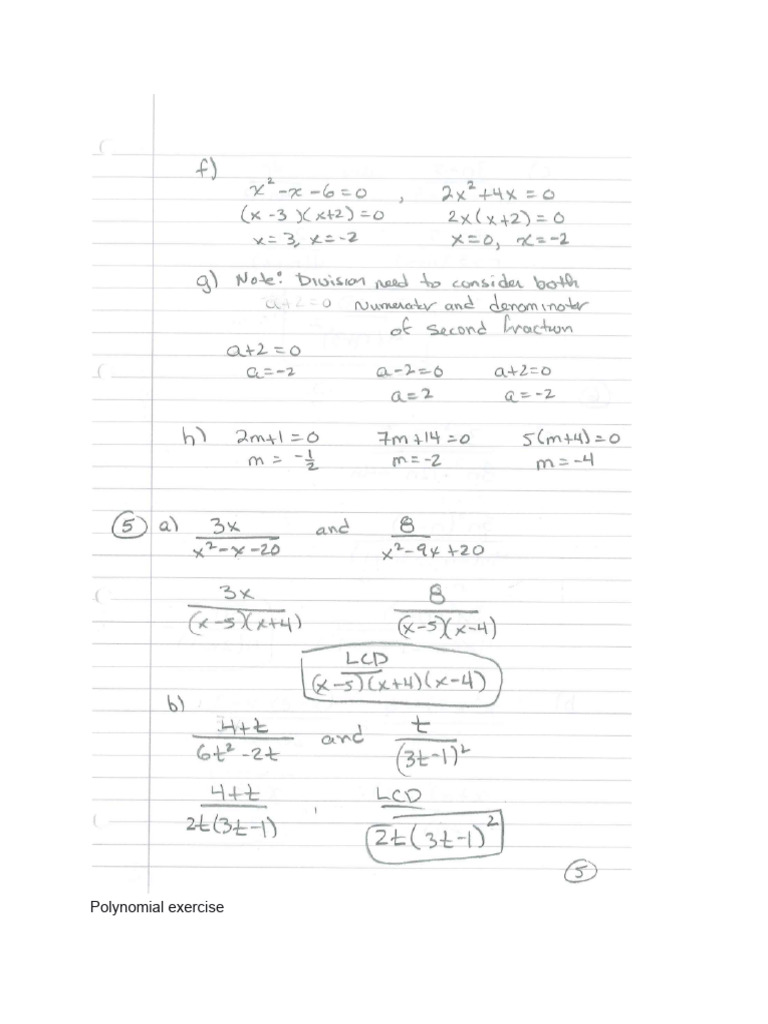 f)
x² - x - 6 = 0 , 2x² + 4x = 0
(x - 3)(x+2) = 0 2x(x+2) = 0
x = 3, x = -2 x = 0, x = -2
g) Note: Division need to consider both
a+2=0 numerator and denominator
of second fraction
a+2 = 0
a = -2 a-2=0 a+2=0
a = 2 a = -2
h) 2m+1 = 0 7m+14 = 0 5(m+4) = 0
m = -1/2 m = -2 m = -4
5 a) 3x/(x²-x-20) and 8/(x²-9x+20)
3x/((x-5)(x+4)) 8/((x-5)(x-4))
LCD
(x-5)(x+4)(x-4)
b)
4+t/(6t²-2t) and t/(3t-1)²
4+t/(2t(3t-1)) LCD
2t(3t-1)²
5
Polynomial exercise